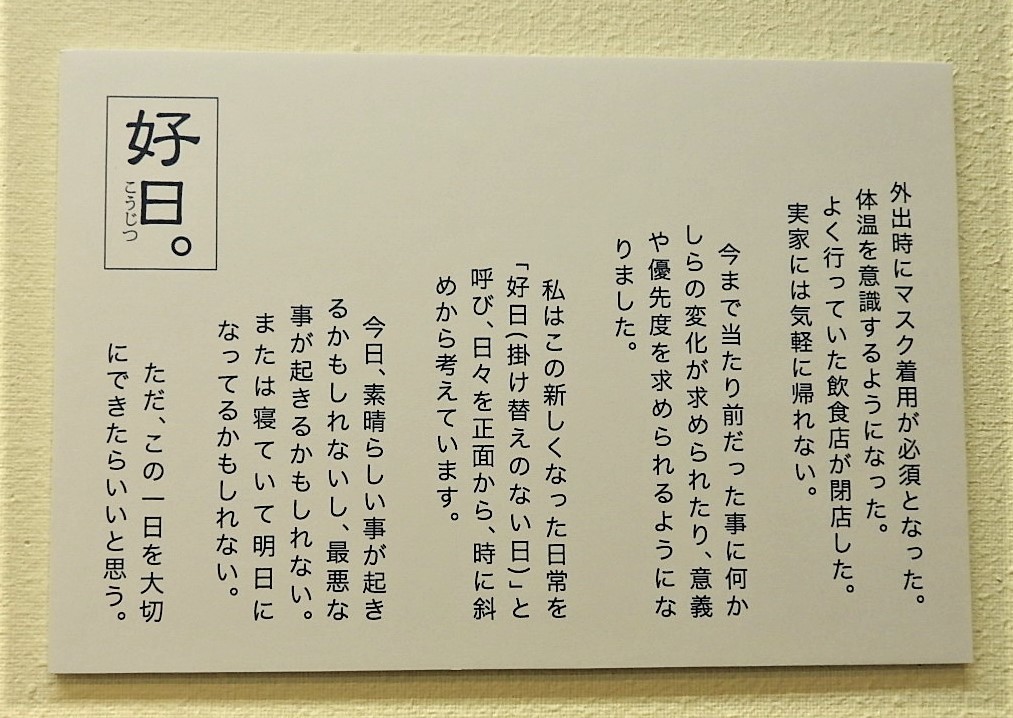 外出時にマスク着用が必須となった。
体温を意識するようになった。
よく行っていた飲食店が閉店した。
実家には気軽に帰れない。
今まで当たり前だった事に何か
しらの変化が求められたり、意義
や優先度を求められるようにな
りました。
私はこの新しくなった日常を
「好日(掛け替えのない日)」と
呼び、日々を正面から、時に斜
めから考えています。
今日、素晴らしい事が起き
るかもしれないし、最悪な
事が起きるかもしれない。
または寝ていて明日に
なってるかもしれない。
ただ、この一日を大切
にできたらいいと思う。
好日。
こうじつ